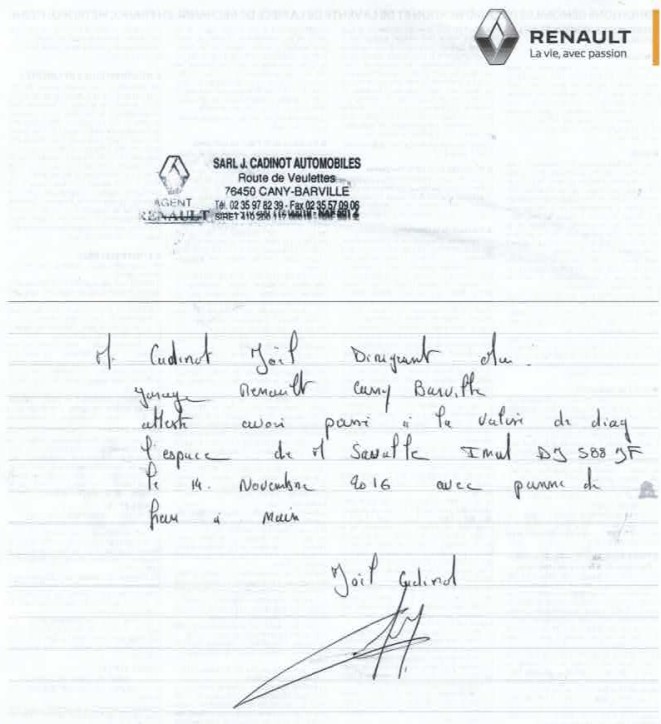 RENAULT
La vie, avec passion
SARL J. CADINOT AUTOMOBILES
Route de Veulettes
76450 CANY-BARVILLE
AGENT
Tél. 02 35 97 82 39 - Fax 02 35 57 09 06
RENAULT
M. Cadinot Joël Dirigeant du
garage Renault Cany Barville
atteste avoir passé à la valise de diag
l'espace de M Savalle Imat DJ 588 JF
le 14. Novembre 2016 avec panne de
frein à Main
Joël Cadinot